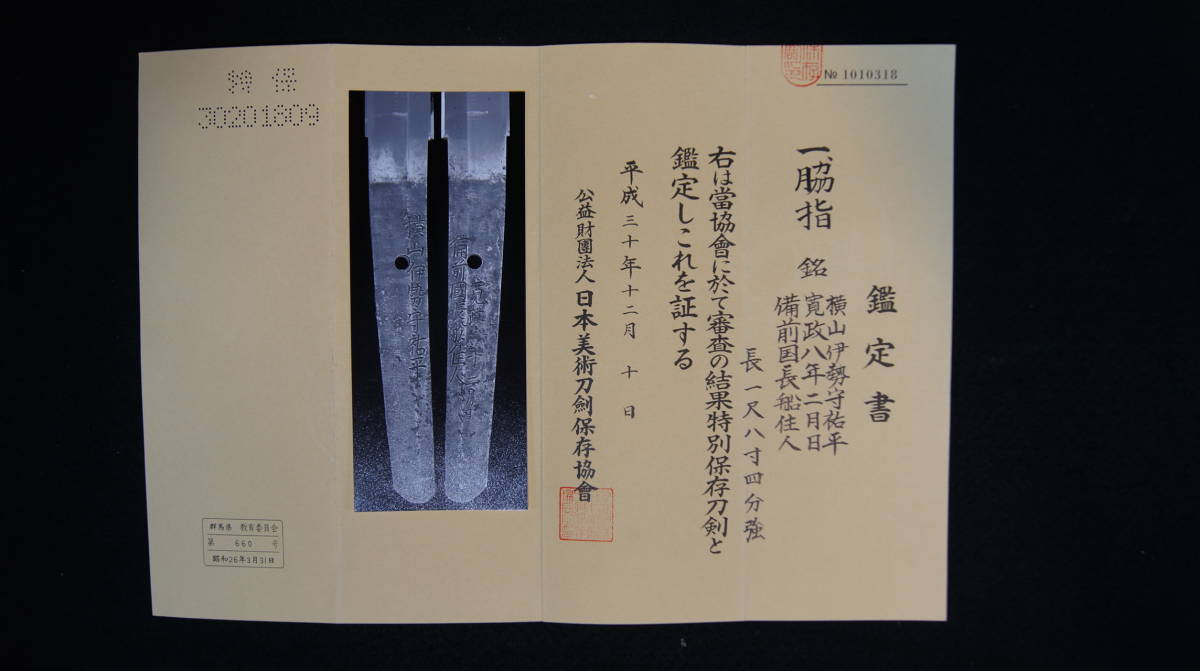 № 1010318
鑑定書
一、脇指 銘 横山伊勢守祐平
寛政八年二月日
備前国長船住人
長一尺八寸四分強
右は當協會に於て審査の結果特別保存刀剣と
鑑定しこれを証する
平成三十年十二月十日
公益財團法人 日本美術刀劍保存協會
横山伊勢守祐平
特保
30201809
群馬県 教育委員会
第 660 号
昭和26年3月31日